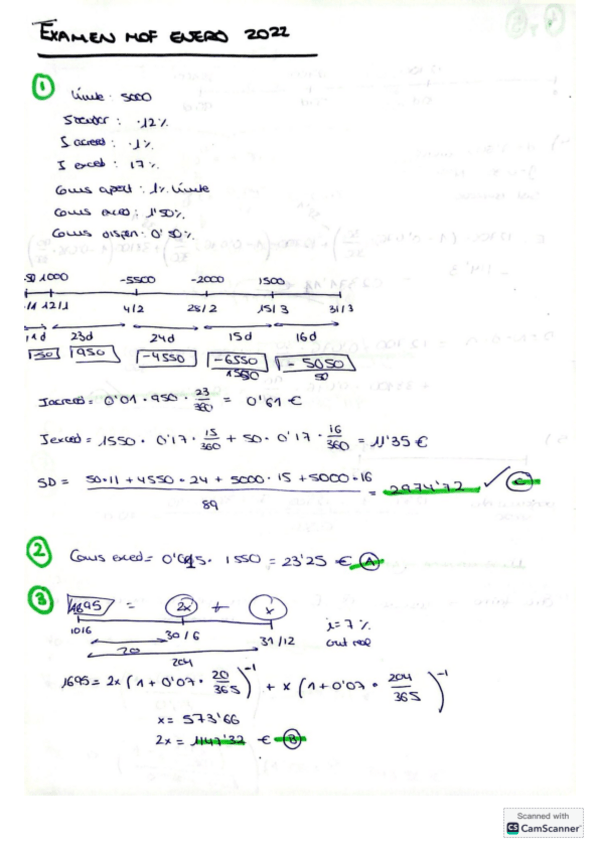 EXAMEN MOF ENERO 2022
①
Límite: 5000
I deudor: 12%
I acreed: 1%
I exced: 17%
Comis apert: 1% límite
Comis exced: 1'50%
Comis dispon: 0'50%
-50 1000 -5500 -2000 1500
1/1 12/1 4/2 28/2 15/3 31/3
11d 23d 24d 15d 16d
-50 950 -4550 -6550 -5050
1550 50
I acreed = 0'01 · 950 · 23/360 = 0'61 €
I exced = 1550 · 0'17 · 15/360 + 50 · 0'17 · 16/360 = 11'35 €
SD = 50·11 + 4550·24 + 5000·15 + 5000·16 / 89 = 2974'72 ✓ C
② Comis exced = 0'015 · 1550 = 23'25 € A
③ 1695 = 2x + x
10/6 30/6 31/12 i = 7%
20 cuit real
204
1695 = 2x (1 + 0'07 · 20/365)^-1 + x (1 + 0'07 · 204/365)^-1
x = 573'66
2x = 1147'32 € B
Scanned with
CS CamScanner